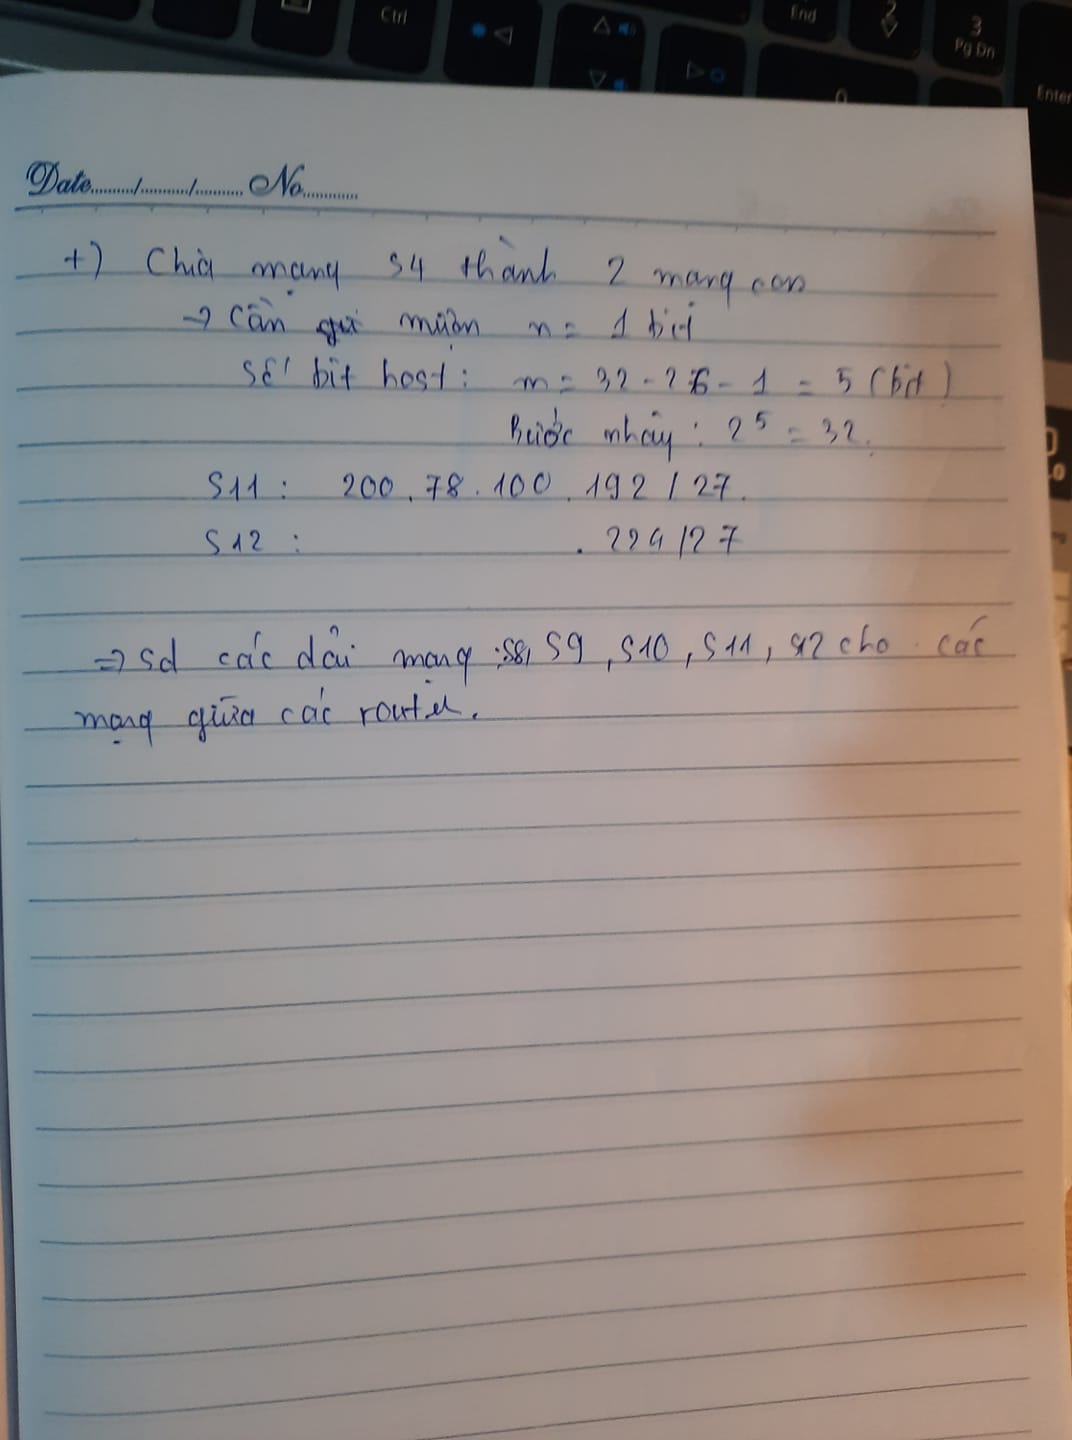 Ctrl
End
2
3
Pg Dn
0
Enter
Date........../.........../........... No............
+) Chia mạng S4 thành 2 mạng con
→ Cần mượn n = 1 bit
Số bit host: m = 32 - 26 - 1 = 5 (bit)
Bước nhảy: 2^5 = 32.
S11: 200.78.100.192/27.
S12: .224/27
=> sd các dải mạng: S8, S9, S10, S11, S12 cho các
mạng giữa các router.